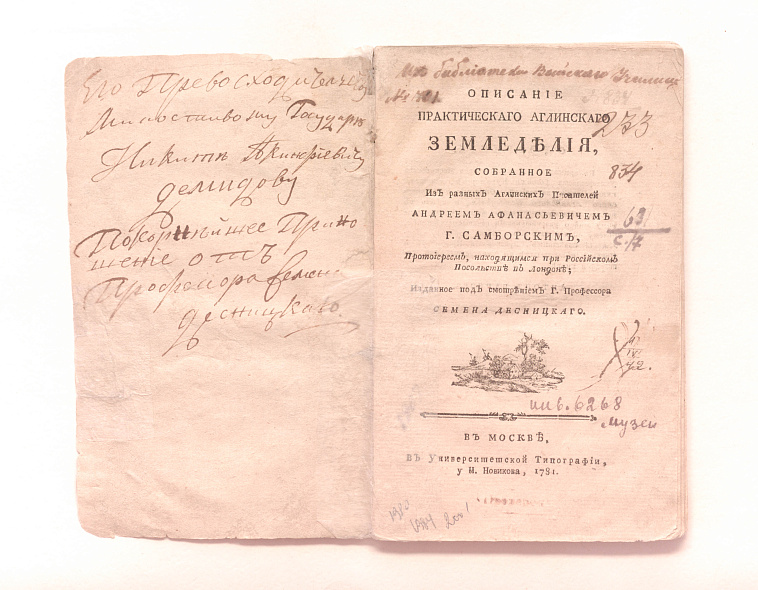 Его Превосходительству
Милостивому Государю
Никите Акинфіевичу
Демидову
Покорнѣйшее Прино
шение отъ
Профессора Семена
Десницкаго.
Изъ библіотеки Выйскаго Училища
№ 701.
ОПИСАНІЕ
834
ПРАКТИЧЕСКАГО АГЛИНСКАГО
233
ЗЕМЛЕДѢЛІЯ,
СОБРАННОЕ
834
Изъ разныхъ Аглинскихъ Писателей
АНДРЕЕМЪ АФАНАСЬЕВИЧЕМЪ
63
С.17
Г. САМБОРСКИМЪ,
Протоіереемъ, находящимся при Россійскомъ
Посольствѣ въ Лондонѣ;
Изданное подъ смотрѣніемъ Г. Профессора
СЕМЕНА ДЕСНИЦКАГО.
72.
инв. 6268
музей
ВЪ МОСКВѢ,
Въ Университетской Типографіи,
у Н. Новикова, 1781.